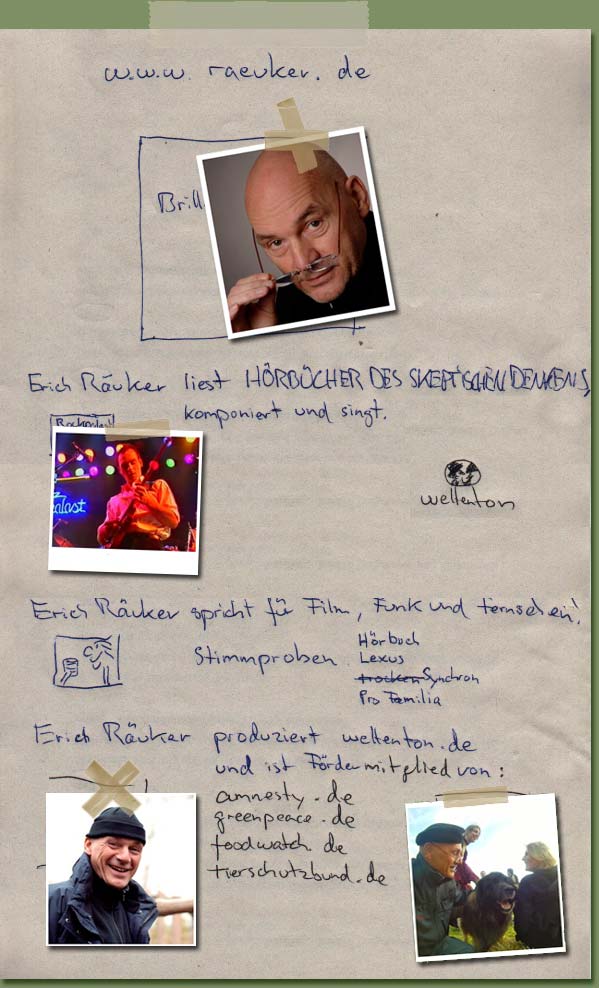 w.w.w. raeuker. de
Brill
Erich Räuker liest HÖRBÜCHER DES SKEPTISCHEN DENKENS,
komponiert und singt.
alast
wellenton
Erich Räuker spricht für Film, Funk und Fernsehen!
Stimmproben
Hörbuch
Lexus
trocken Synchron
Pro Familia
Erich Räuker produziert wellenton.de
und ist Fördermitglied von:
amnesty.de
greenpeace.de
foodwatch.de
tierschutzbund.de